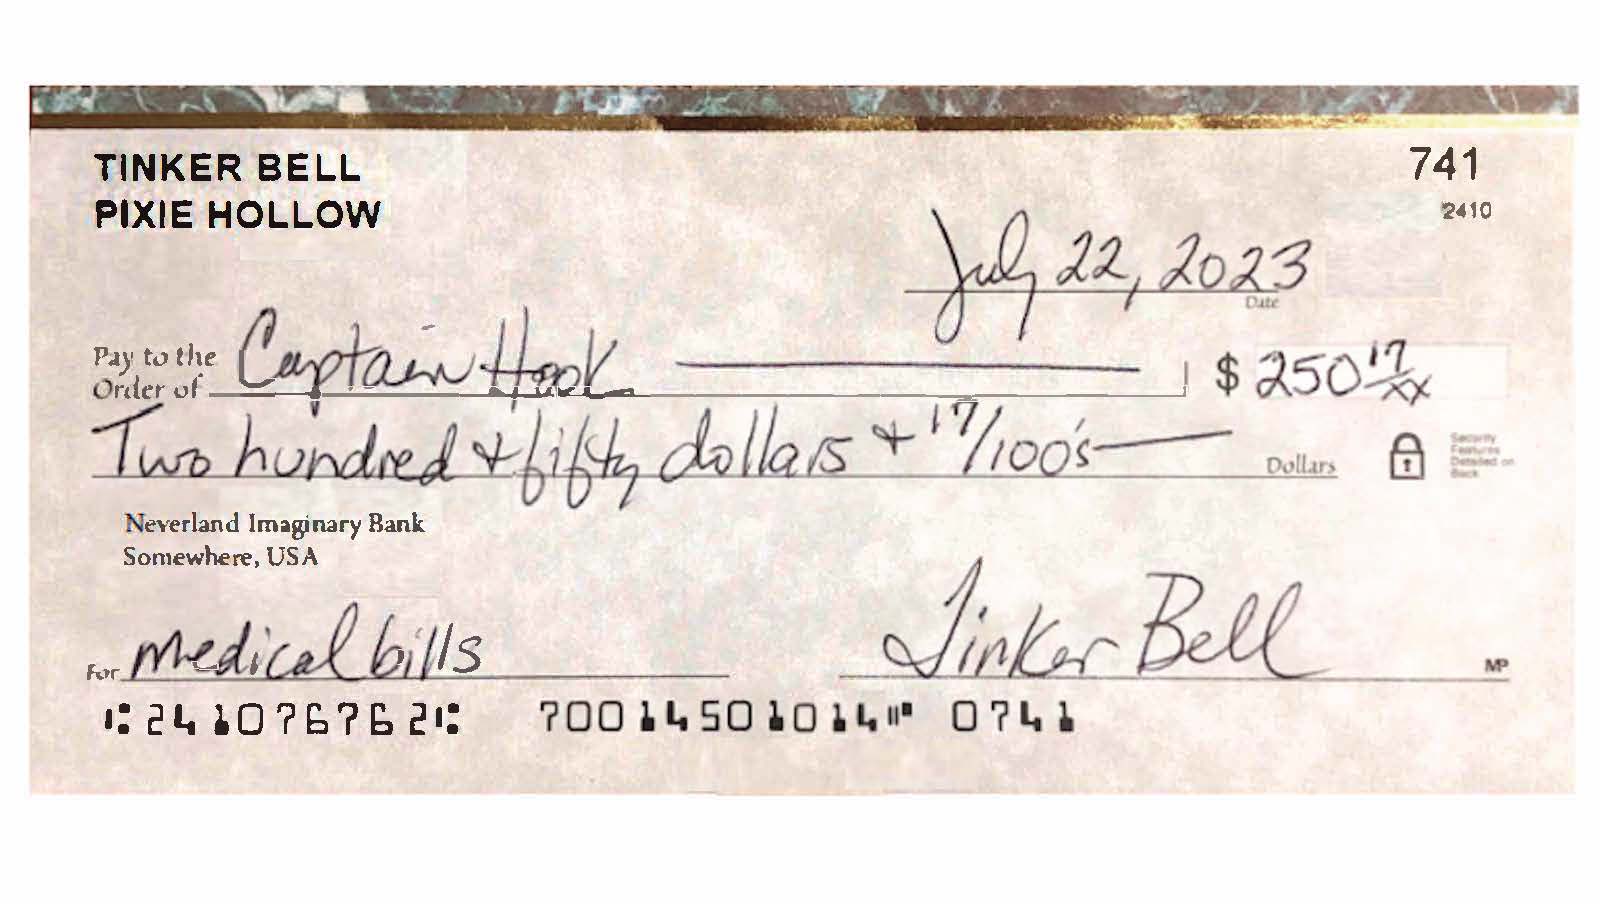 TINKER BELL
PIXIE HOLLOW
741
2410
July 22, 2023
Date
Pay to the
Order of Captain Hook $ 250 17/xx
Two hundred & fifty dollars + 17/100's Dollars
Security
Features
Detailed on
Back
Neverland Imaginary Bank
Somewhere, USA
For medical bills Tinker Bell MP
⑆241076762⑆ 70014501014⑈ 0741